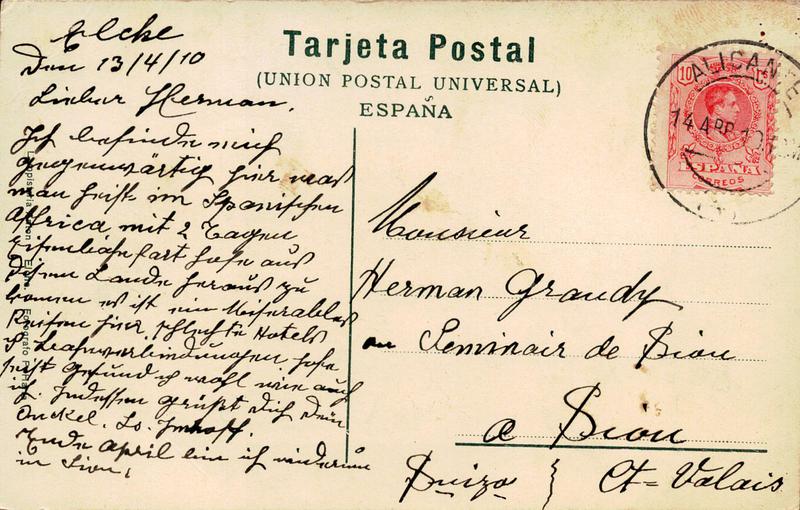 Elche
Den 13/4/10
Lieber Herman.
Ich befinde mich
gegenwärtig hier was
man heist im Spanischen
Africa, mit 2 Tagen
Eisenbahnfart hofe aus
disem Lande heraus zu
kommen es ist ein Miserables
Reisen hier, schlechte Hotels
u. Bahnverbindungen. hofe
seist gesund u wohl wie auch
ich. Indessen grüßt Dich Dein
Onckel. Lo. Imhoff.
Ende April bin ich wiederum
in Sion.
Tarjeta Postal
(UNION POSTAL UNIVERSAL)
ESPAÑA
ALICANTE
14 ABR 10
10 Cs
ESPAÑA
CORREOS
Monsieur
Herman Grandy
au Seminair de Sion
a Sion
Suiza } Ct= Valais